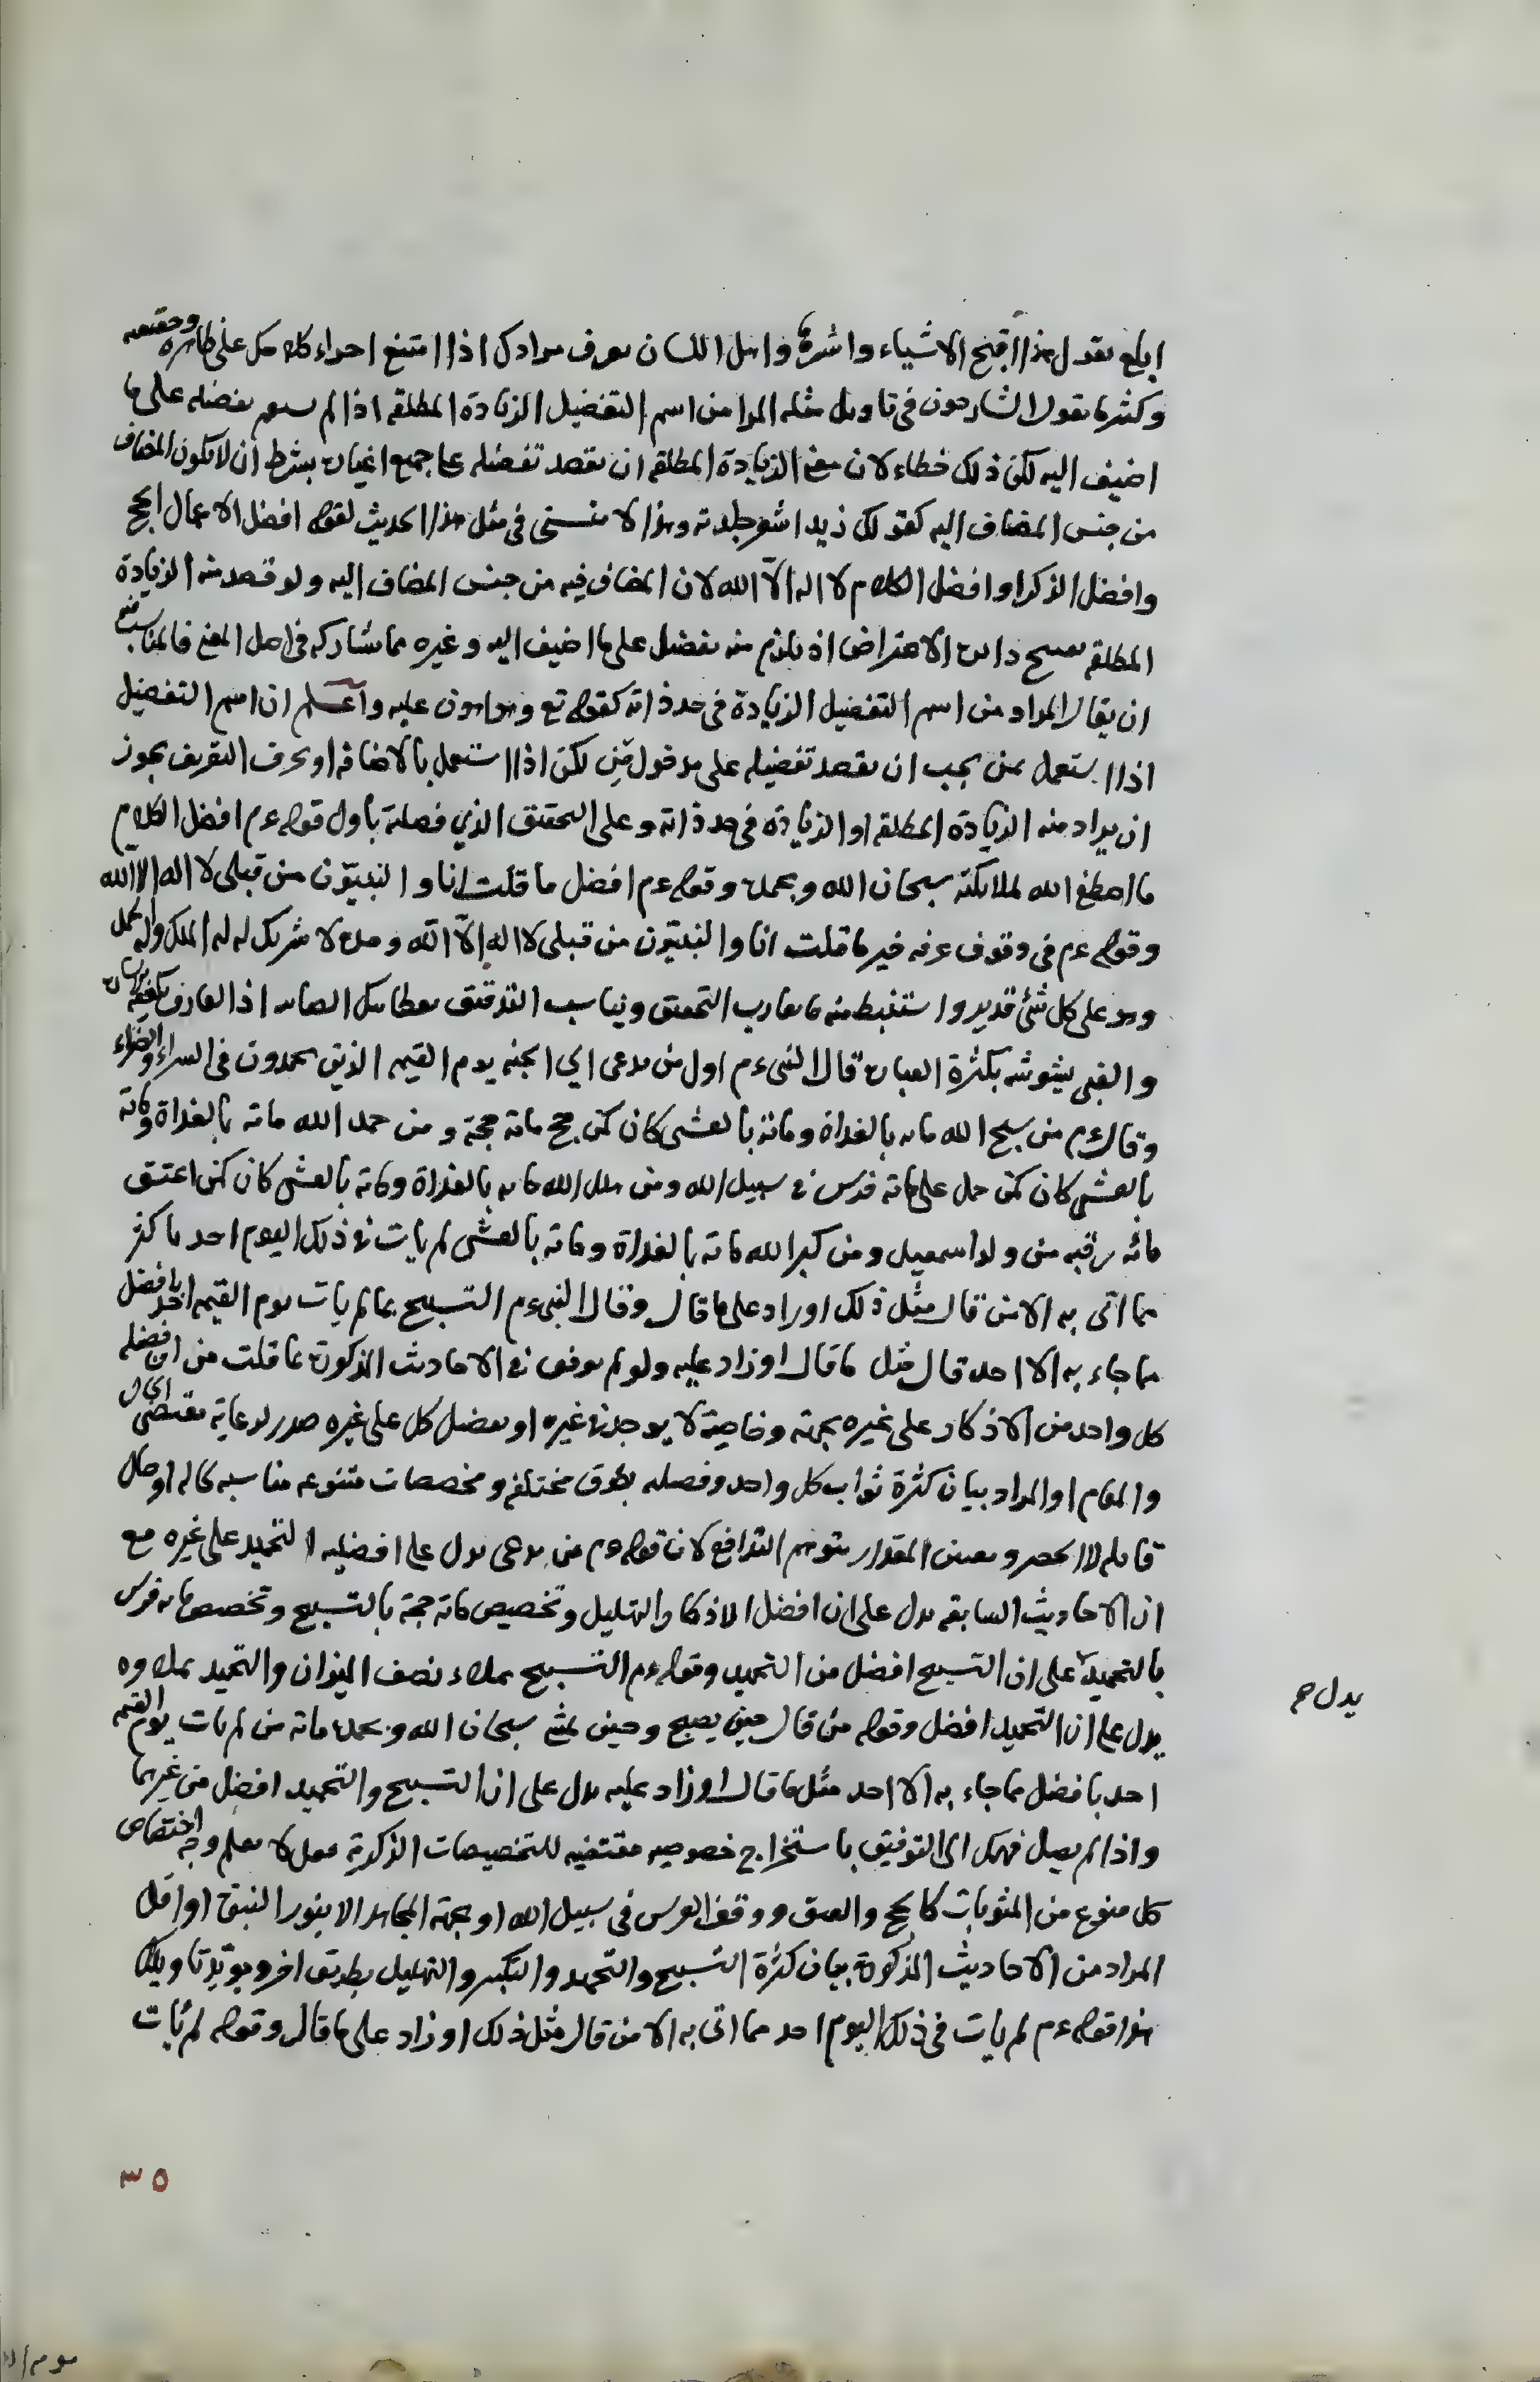 ابلغ تقول هذا اقبح الاشياء واشره واهل اللسان يعرف مرادك اذا امتنع اجراء كلامك على ظاهره وحقيقته
وكثيرا ما يقول الشارحون في تاويل مثله المراد من اسم التفضيل الزيادة المطلقة اذا لم تفضله على ما
اضيف اليه لكن ذلك خطاء لان معنى الزيادة المطلقة ان يقصد تفضيله على جميع اغياره بشرط ان لا يكون المضاف
من جنس المضاف اليه كقولك زيد اشعر جلدته وهذا لا في مثل هذا الحديث لقوله افضل الاعمال الحج
وافضل الذكر او افضل الكلام لا اله الاّ الله لان المضاف فيه من جنس المضاف اليه ولو قصد منه الزيادة
المطلقة الاعتراض اذ يلزم منه تفضيل على ما اضيف اليه وغيره مما يشاركه في اصل المعنى فالمناسب
ان يقال المراد من اسم التفضيل الزيادة في حد ذاته كقوله تع وهو اهون عليه واعلم ان اسم التفضيل
اذا استعمل بمن يجب ان يقصد تفضيله على مدخول مِن لكن اذا استعمل بالاضافة او بحرف التعريف يجوز
ان يراد منه الزيادة المطلقة او الزيادة في حد ذاته وعلى التحقيق الذي فصلته ياول قوله عم افضل الكلام
ما اصطفى الله لملائكته سبحان الله وبحمده وقوله عم افضل ما قلت انا والنبيّون من قبلي لا اله الا الله
وقوله عم في وقوف عرفه خير ما قلت انا والنبيّون من قبلي لا اله الاّ الله وحده لا شريك له له الملك وله الحمد
وهو على كل شئ قدير واستنبط منه ما يقارب التحقيق ويناسب التدقيق اذ العارف يكفيه
والغبي يشوشه بكثرة العبارة قال النبي عم اول من يدعى الي الجنة يوم القيمة الذين يحمدون في السراء والضراء
وقال عم من سبح الله مائة بالغداة ومائة بالعشي كان كمن حج مائة حجة ومن حمد الله مائة بالغداة ومائة
بالعشي كان كمن حمل على مائة فرس في سبيل الله ومن هلل الله مائة بالغداة ومائة بالعشي كان كمن اعتق
مائه رقبه من ولد اسمعيل ومن كبر الله مائة بالغداة ومائة بالعشي لم يات في ذلك اليوم احد باكثر
مما اتى به الا من قال مثل ذلك او زاد على ما قال وقال النبي عم التسبيح مما لم يات يوم القيمة احد بافضل
مما جاء به الا احد قال مثل ما قال او زاد عليه ولو لم يوفق في الاحاديث المذكورة بما قلت من ان فضله
كل واحد من الاذكار على غيره بجهة وخاصية لا يوجد في غيره او تفضيل كل على غيره صدر لرعاية مقتضى الحال
والمقام او المراد بيان كثرة ثواب كل واحد وفضله بطرق مختلفة ومخصصات متنوعه مناسبه لحاله او حال
قايله لا الحصر وتعيين المقدار يتوهم التدافع لان قوله عم من يدعى يدل على افضلية التحميد على غيره مع
ان الاحاديث السابقة يدل على ان افضل الاذكار التهليل وتخصيص مائة حجة بالتسبيح وتخصيص مائة فرس
بالتحميد على ان التسبيح افضل من التحميد وقوله عم التسبيح يملاء نصف الميزان والتحميد يملاوه
يدل صح
يدل على ان التحميد افضل وقوله من قال حين يصبح وحين يمسي سبحان الله وبحمده مائة من لم يات يوم القيمة
احد بافضل مما جاء به الا احد مثل ما قال او زاد عليه يدل على ان التسبيح والتحميد افضل من غيرهما
واذا لم يصل فهمك الى التوفيق باستخراج خصوصيه مقتضيه للتخصيصات المذكورة لا يعلم وجه اختصاص
كل منوع من المثوبات كالحج والعتق ووقف الفرس في سبيل الله او بجهة المجاهد الا بنور النبوة او اقل
المراد من الاحاديث المذكورة بيان كثرة التسبيح والتحميد والتكبير والتهليل بطريق اخر ويؤيد تاويلك
هذا قوله عم لم يات في ذلك اليوم احد مما اتى به الا من قال مثل ذلك او زاد على ما قال وقوله لم يأت
٣٥